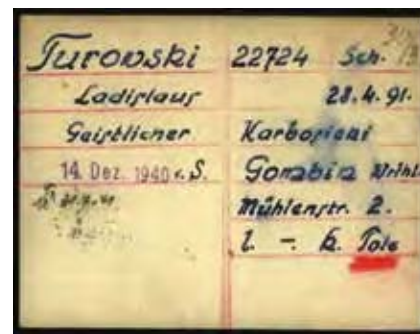 Turovski 22724 Sch.
Ladislaus 28.4.91.
Geistlicher Karbosieni
14. Dez. 1940 v. S. Gombin
Mühlenstr. 2.
l. - k. Pole